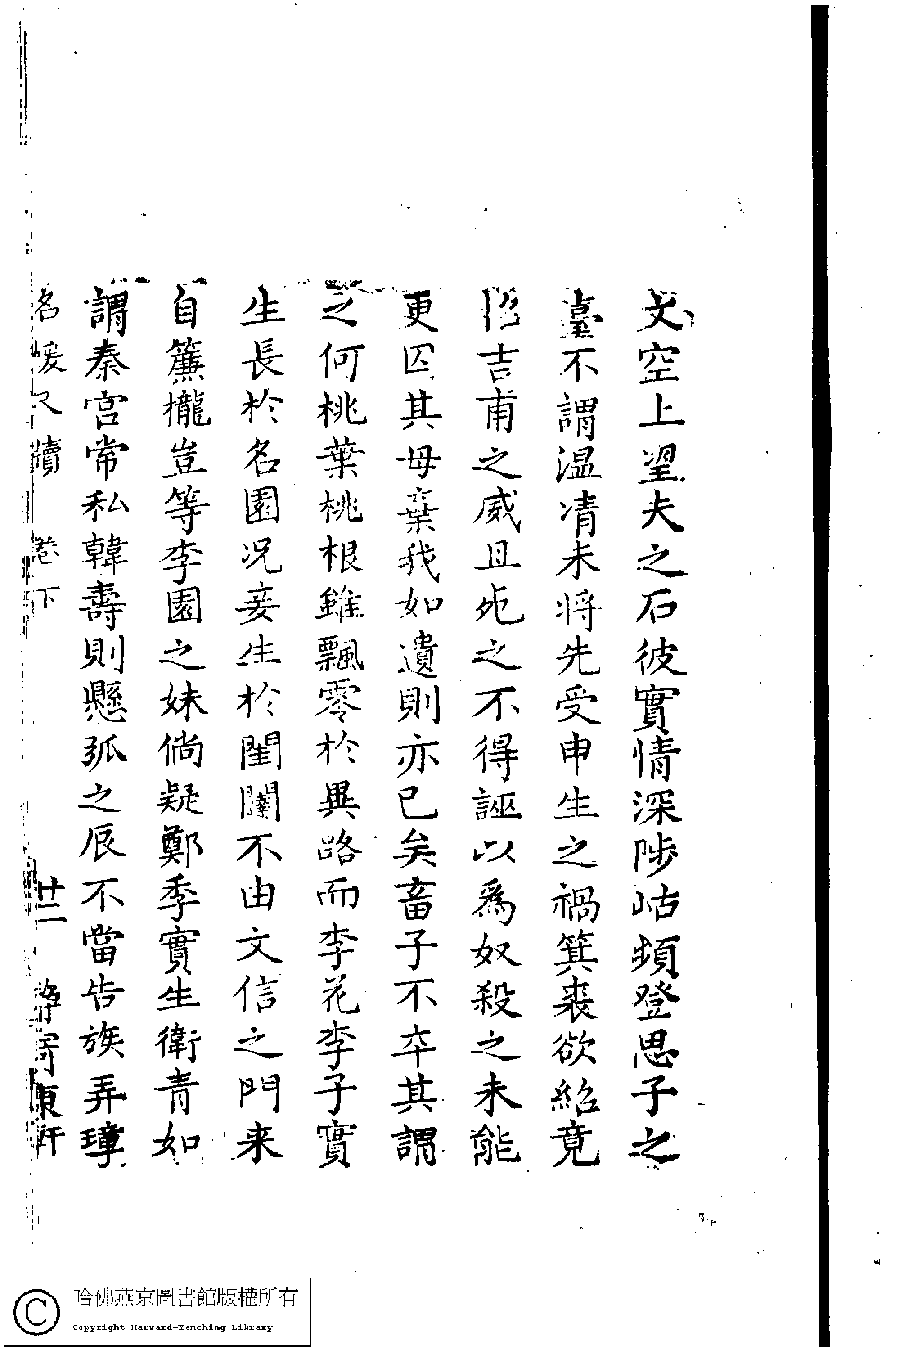 文空上望夫之石彼實情深陟岵頻登思子之
臺不謂温凊未將先受申生之禍箕裘欲紹竟
吉甫之威且虎之不得誣以爲奴殺之未能
更囚其母棄我如遺則亦已矣畜子不卒其謂
之何桃葉桃根雖飄零於異路而李花李子實
生長於名園况妾生於閨闥不由文信之門来
自簾櫳豈等李園之妹倘疑鄭季實生衛青如
謂秦宫常私韓壽則懸弧之辰不當告族弄璋
名媛尺牘 卷下 廿二 静寄東軒
哈佛燕京圖書館版權所有
Copyright Harvard-Yenching Library